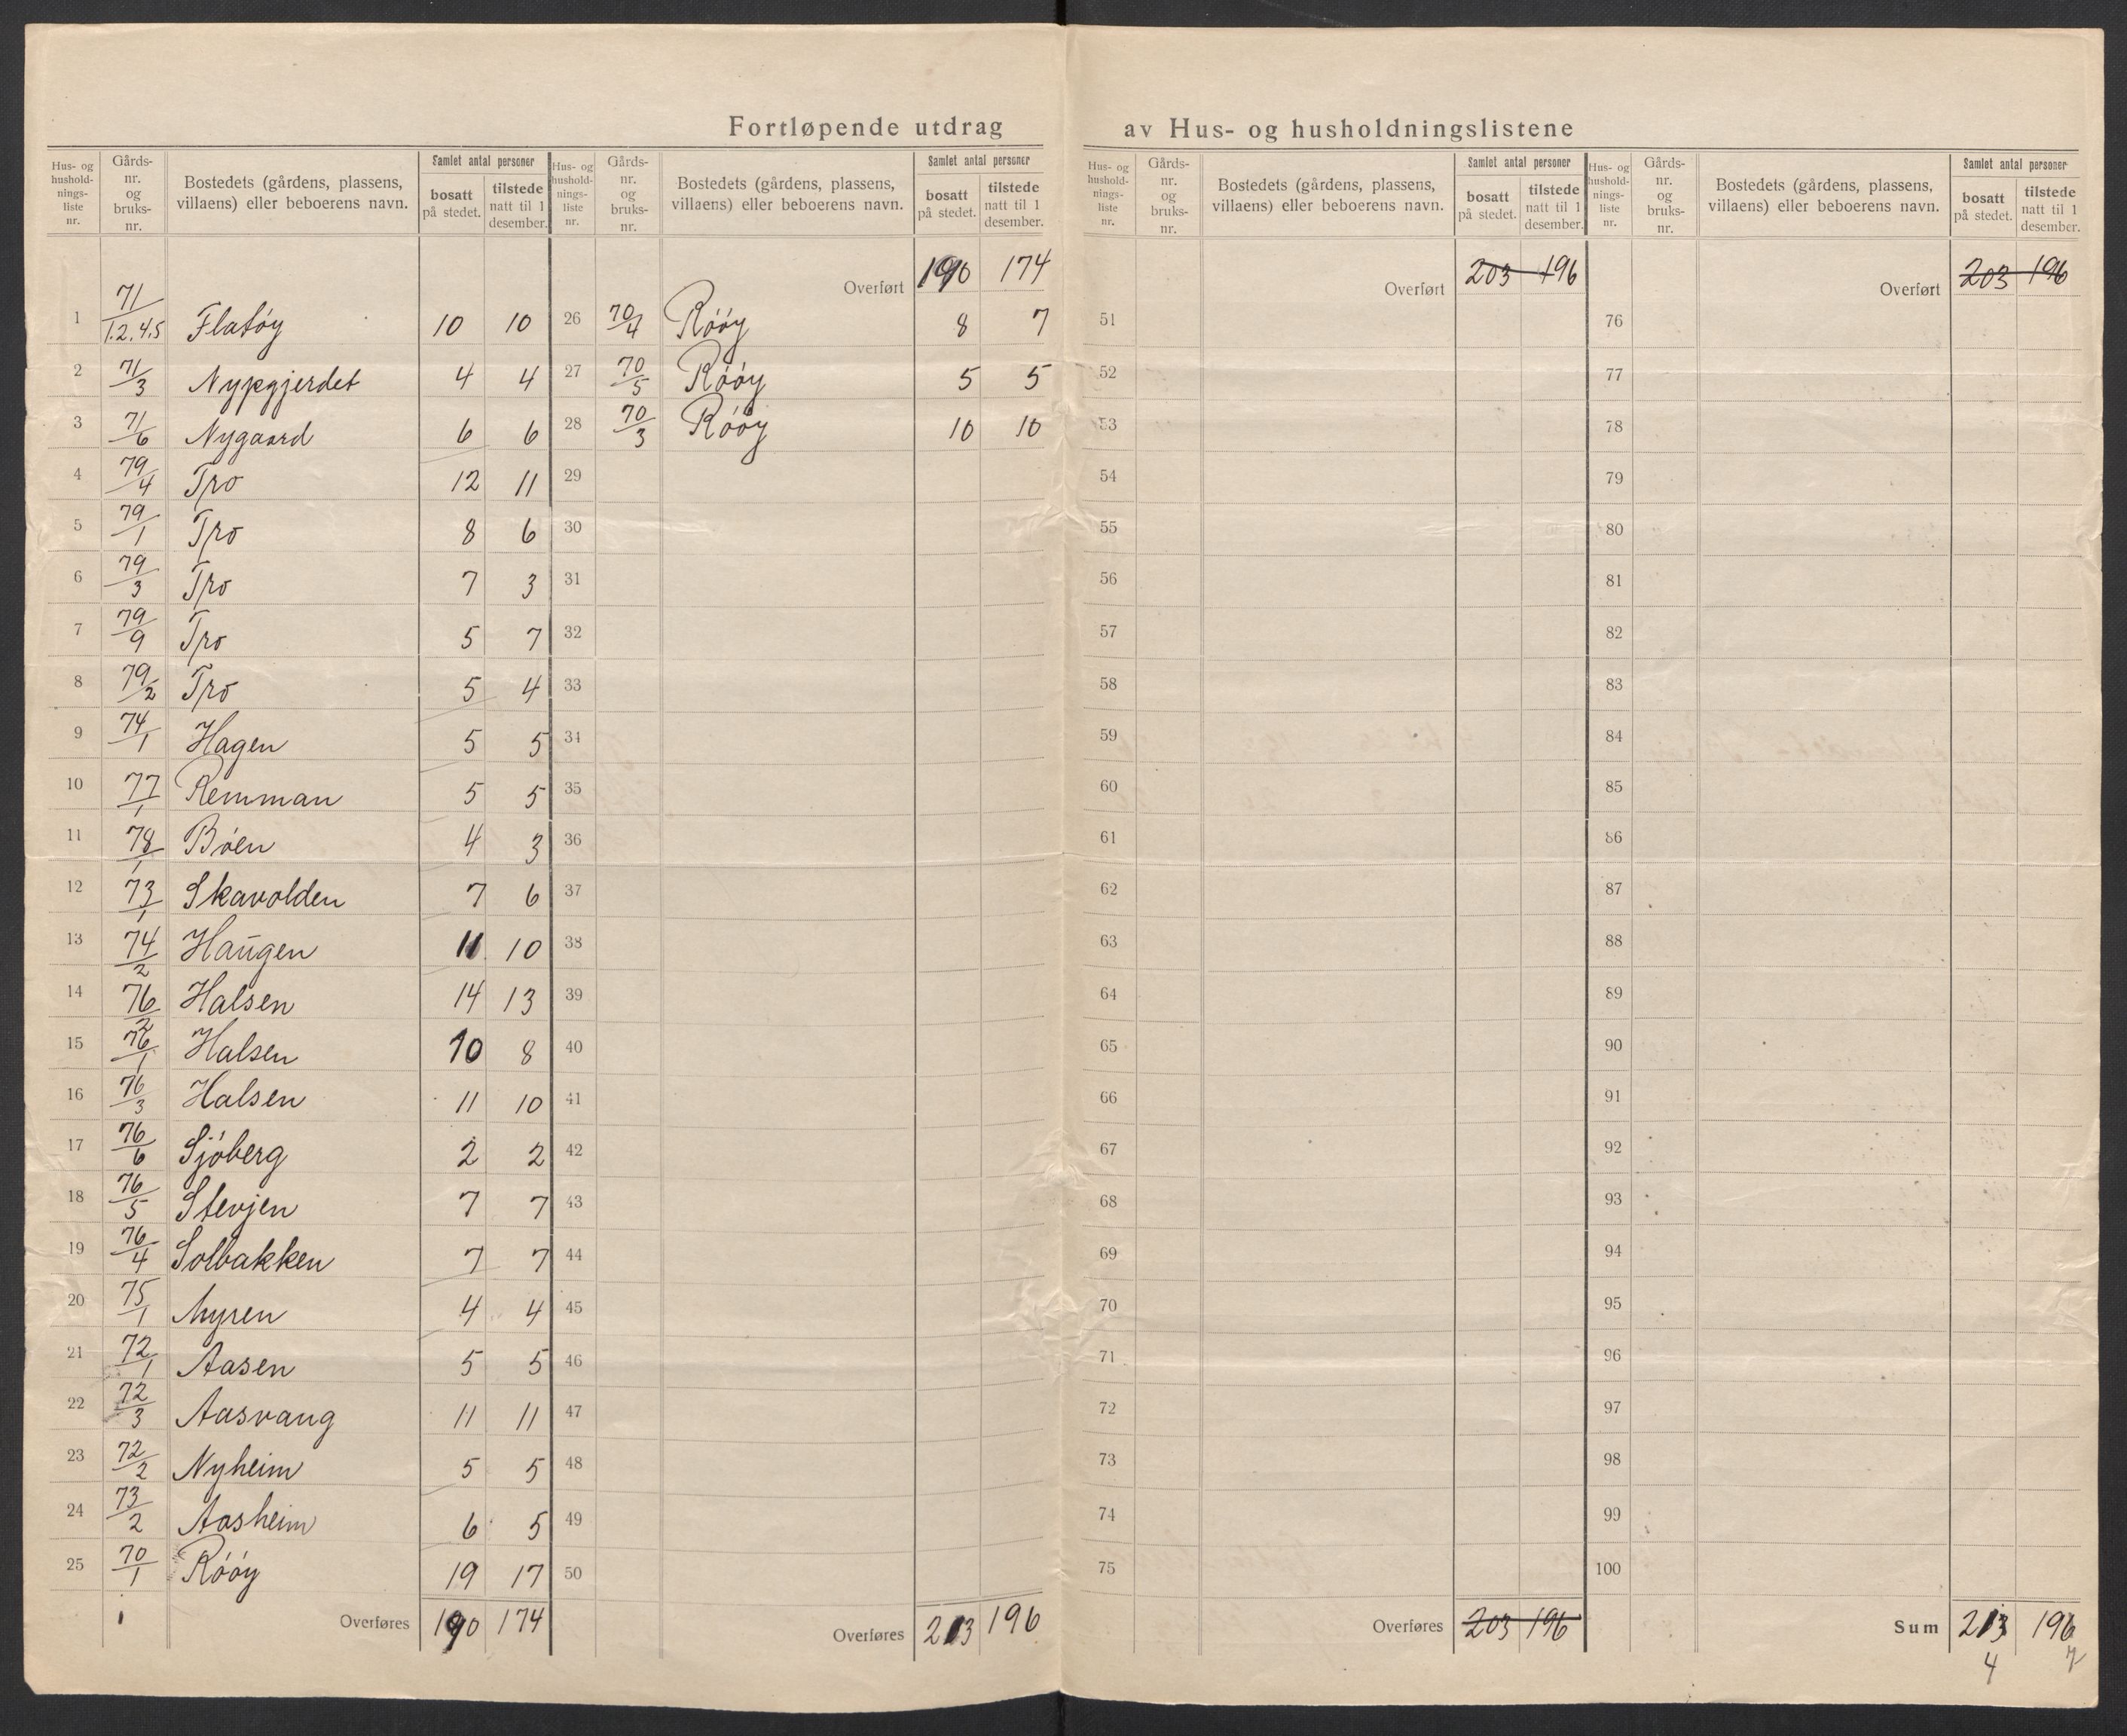 Fortløpende utdrag av Hus- og husholdningslistene
Hus- og hushold- nings- liste nr. | Gårds- nr. og bruks- nr. | Bostedets (gårdens, plassens, villaens) eller beboerens navn. | Samlet antal personer | bosatt på stedet. | tilstede natt til 1 desember.
1 71/1.2.4.5 Flatøy 10 10
2 71/3 Nypgjerdet 4 4
3 71/6 Nygaard 6 6
4 79/4 Tro 12 11
5 79/1 Tro 8 6
6 79/3 Tro 7 3
7 79/9 Tro 5 7
8 79/2 Tro 5 4
9 74/1 Hagen 5 5
10 77/1 Remman 5 5
11 78/1 Bøen 4 3
12 73/1 Skavolden 7 6
13 74/2 Haugen 11 10
14 76/2 Halsen 14 13
15 76/1 Halsen 10 8
16 76/3 Halsen 11 10
17 76/6 Sjøberg 2 2
18 76/5 Stevjen 7 7
19 76/4 Solbakken 7 7
20 75/1 Myren 4 4
21 72/1 Aasen 5 5
22 72/3 Aasvang 11 11
23 72/2 Nyheim 5 5
24 73/2 Aasheim 6 5
25 70/1 Røøy 19 17
Overføres 190 174
Hus- og hushold- nings- liste nr. | Gårds- nr. og bruks- nr. | Bostedets (gårdens, plassens, villaens) eller beboerens navn. | Samlet antal personer | bosatt på stedet. | tilstede natt til 1 desember.
Overført 190 174
26 70/4 Røøy 8 7
27 70/5 Røøy 5 5
28 70/3 Røøy 10 10
29
30
31
32
33
34
35
36
37
38
39
40
41
42
43
44
45
46
47
48
49
50
Overføres 213 196
Hus- og hushold- nings- liste nr. | Gårds- nr. og bruks- nr. | Bostedets (gårdens, plassens, villaens) eller beboerens navn. | Samlet antal personer | bosatt på stedet. | tilstede natt til 1 desember.
Overført 203 196
51
52
53
54
55
56
57
58
59
60
61
62
63
64
65
66
67
68
69
70
71
72
73
74
75
Overføres 203 196
Hus- og hushold- nings- liste nr. | Gårds- nr. og bruks- nr. | Bostedets (gårdens, plassens, villaens) eller beboerens navn. | Samlet antal personer | bosatt på stedet. | tilstede natt til 1 desember.
Overført 203 196
76
77
78
79
80
81
82
83
84
85
86
87
88
89
90
91
92
93
94
95
96
97
98
99
100
Sum 213 196
4 7